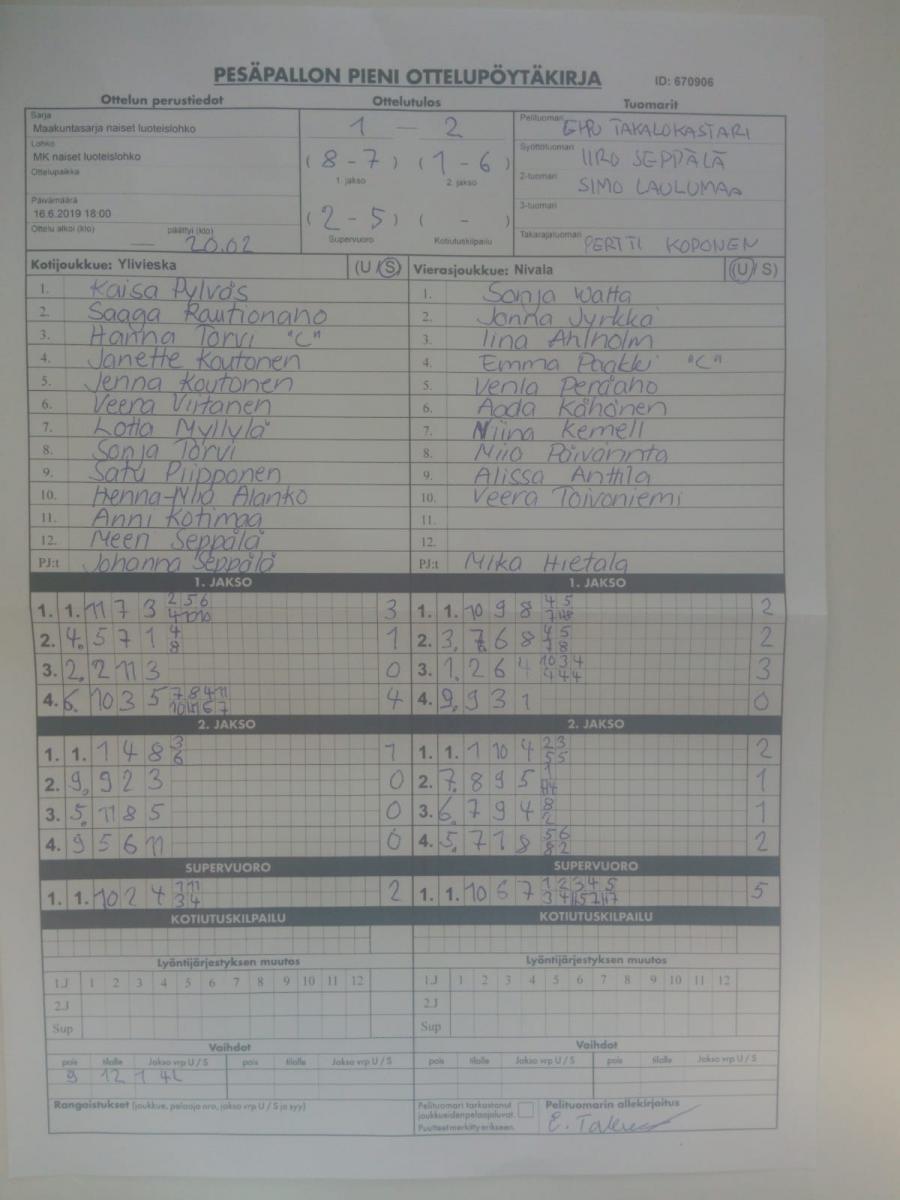 PESÄPALLON PIENI OTTELUPÖYTÄKIRJA ID: 670906
Ottelun perustiedot Ottelutulos Tuomarit
Sarja
Maakuntasarja naiset luoteislohko
Lohko
MK naiset luoteislohko
Ottelupaikka
Päivämäärä
16.6.2019 18:00
Ottelu alkoi (klo) päättyi (klo)
— 20.02
1 — 2
(8 - 7) (1 - 6)
1. jakso 2. jakso
(2 - 5) ( - )
Supervuoro Kotiutuskilpailu
Pelituomari TAKALOKASTARI
Syöttötuomari IIRO SEPPÄLÄ
2-tuomari SIMO LAULUMAA
3-tuomari
Takarajatuomari PERTTI KOPONEN
Kotijoukkue: Ylivieska (U / S) Vierasjoukkue: Nivala (U / S)
1. Kaisa Pylväs 1. Sonja Watta
2. Saaga Rautionaho 2. Jonna Jyrkkä
3. Hanna Torvi "C" 3. Iina Ahlholm
4. Janette Koutonen 4. Emma Paakki "C"
5. Jenna Koutonen 5. Venla Peräaho
6. Veera Virtanen 6. Aada Kähönen
7. Lotta Myllylä 7. Niina Kemell
8. Sonja Torvi 8. Miia Päivärinta
9. Satu Piipponen 9. Alissa Anttila
10. Henna-Miia Alanko 10. Veera Toivoniemi
11. Anni Kotimaa 11.
12. Meeri Seppälä 12.
PJ:t Johanna Seppälä PJ:t Mika Hietala
1. JAKSO 1. JAKSO
1. 1. 11 7 3 3 1. 1. 10 9 8 2
2. 4. 5 7 1 4 8 1 2. 3. 7 6 8 4 5 7 8 2
3. 2. 2 11 3 0 3. 1. 2 6 4 10 3 4 4 4 4 3
4. 6. 10 3 5 4 4. 9. 9 3 1 0
2. JAKSO 2. JAKSO
1. 1. 1 4 8 3 6 1 1. 1. 1 10 4 2 3 5 5 2
2. 9. 9 2 3 0 2. 7. 8 9 5 1
3. 5. 11 8 5 0 3. 6. 7 9 4 8 2 1
4. 9 5 6 11 0 4. 5. 7 1 8 5 6 8 2 2
SUPERVUORO SUPERVUORO
1. 1. 10 2 4 2 1. 1. 10 6 7 5
KOTIUTUSKILPAILU KOTIUTUSKILPAILU
Lyöntijärjestyksen muutos Lyöntijärjestyksen muutos
1.J 1 2 3 4 5 6 7 8 9 10 11 12 1.J 1 2 3 4 5 6 7 8 9 10 11 12
2.J 2.J
Sup Sup
Vaihdot Vaihdot
pois tilalle Jakso vrp U / S pois tilalle Jakso vrp U / S pois tilalle Jakso vrp U / S pois tilalle Jakso vrp U / S
9 12 1 4L
Rangaistukset (joukkue, pelaaja nro, jakso vrp U / S ja syy)
Pelituomari tarkastanut
joukkueidenpelaajaluvat.
Puutteet merkitty erikseen.
Pelituomarin allekirjoitus